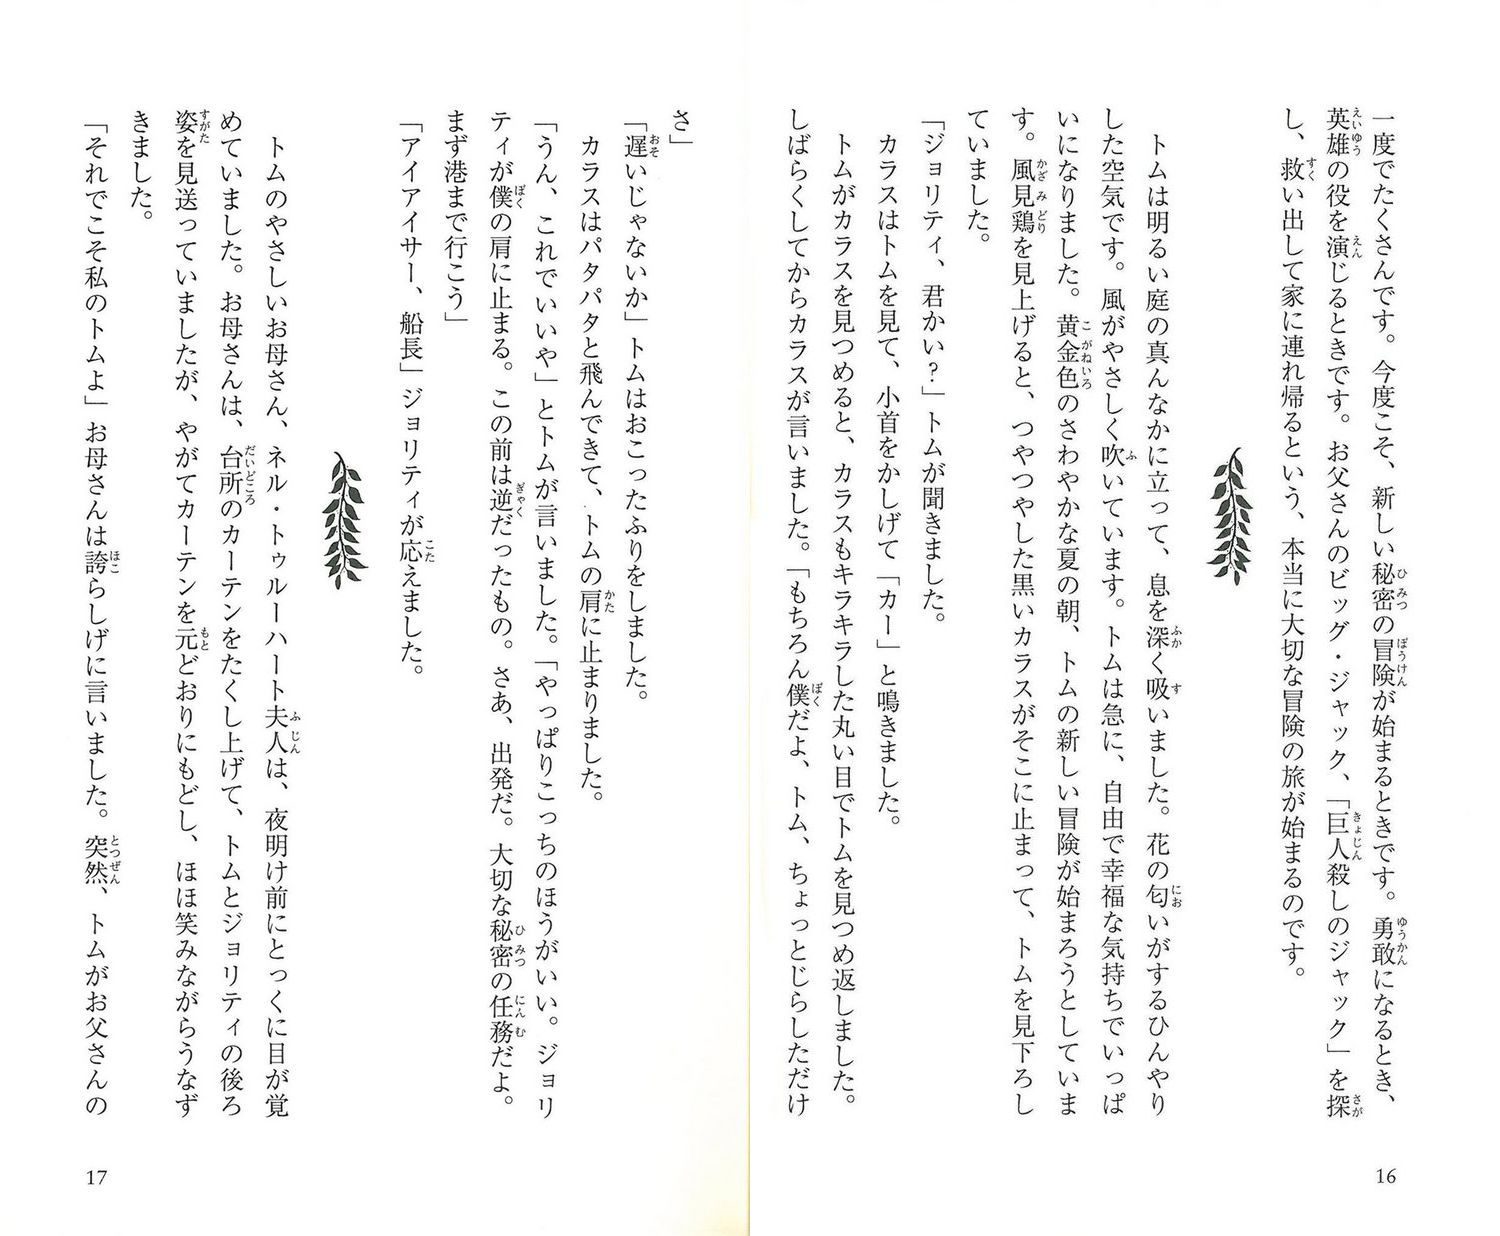 一度でたくさんです。今度こそ、新しい秘密の冒険が始まるときです。勇敢になるとき、
英雄の役を演じるときです。お父さんのビッグ・ジャック、「巨人殺しのジャック」を探
し、救い出して家に連れ帰るという、本当に大切な冒険の旅が始まるのです。
トムは明るい庭の真んなかに立って、息を深く吸いました。花の匂いがするひんやり
した空気です。風がやさしく吹いています。トムは急に、自由で幸福な気持ちでいっぱ
いになりました。黄金色のさわやかな夏の朝、トムの新しい冒険が始まろうとしていま
す。風見鶏を見上げると、つやつやした黒いカラスがそこに止まって、トムを見下ろし
ていました。
「ジョリティ、君かい?」トムが聞きました。
カラスはトムを見て、小首をかしげて「カー」と鳴きました。
トムがカラスを見つめると、カラスもキラキラした丸い目でトムを見つめ返しました。
しばらくしてからカラスが言いました。「もちろん僕だよ、トム、ちょっとじらしただけ
16
さ」
「遅いじゃないか」トムはおこったふりをしました。
カラスはパタパタと飛んできて、トムの肩に止まりました。
「うん、これでいいや」とトムが言いました。「やっぱりこっちのほうがいい。ジョリ
ティが僕の肩に止まる。この前は逆だったもの。さあ、出発だ。大切な秘密の任務だよ。
まず港まで行こう」
「アイアイサー、船長」ジョリティが応えました。
トムのやさしいお母さん、ネル・トゥルーハート夫人は、夜明け前にとっくに目が覚
めていました。お母さんは、台所のカーテンをたくし上げて、トムとジョリティの後ろ
姿を見送っていましたが、やがてカーテンを元どおりにもどし、ほほ笑みながらうなず
きました。
「それでこそ私のトムよ」お母さんは誇らしげに言いました。突然、トムがお父さんの
17